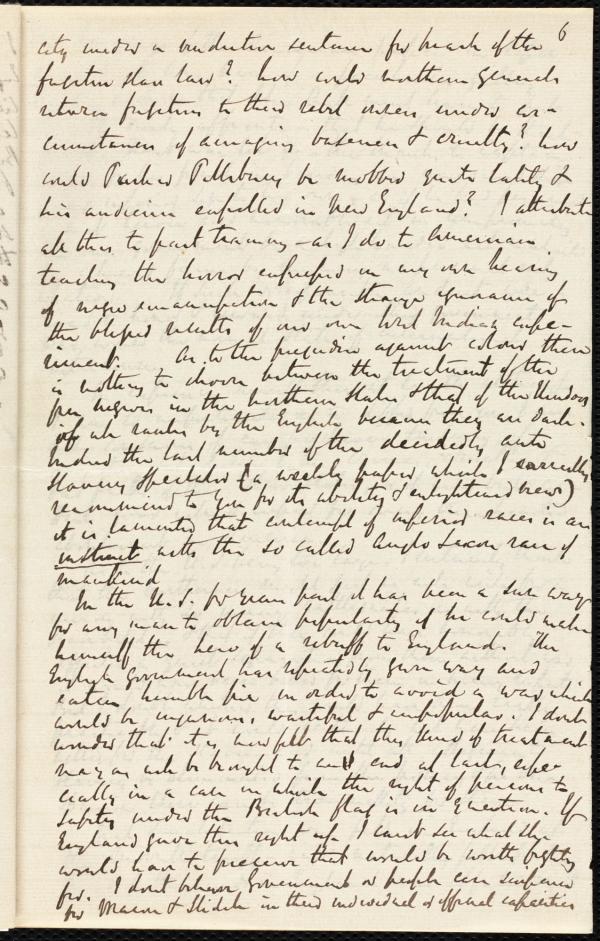 6
city under a vindictive sentence for breach of the
fugitive slave law? how could northern generals
return fugitives to their rebel owners under cir-
cumstances of amazing baseness & cruelty? how
could Parker Pillsbury be mobbed quite lately &
his audience expelled in New England? I attribute
all this to past training – as I do to American
teaching the horror expressed in my own hearing
of negro emancipation & the strange ignorance of
the blessed results of our own West Indian expe-
riment. As to the prejudice against colour there
is nothing to choose between the treatment of the
free negroes in the Northern States & that of the Hindoos
of all ranks by the English because they are dark.
Indeed the last number of the decidedly anti
slavery Spectator (a weekly paper which I earnestly
recommend to you for its ability & enlightened views)
it is lamented that contempt of inferior races is an
instinct with the so called Anglo Saxon race of
mankind
In the U.S. for years past it has been a sure way
for any man to obtain popularity if he could make
himself the hero of a rebuff to England. The
English Government has repeatedly given way and
eaten humble pie in order to avoid a war which
would be injurious, wasteful & unpopular. I dont
wonder that it is now felt that this kind of treatment
may as well be brought to an end at last, espe-
cially in a case in which the right of persons to
safety under the British flag is in question. If
England gave this right up I cant see what she
would have to preserve that would be worth fighting
for. I dont believe Government or people care sixpence
for Mason & Slidell in their individual or official capacities